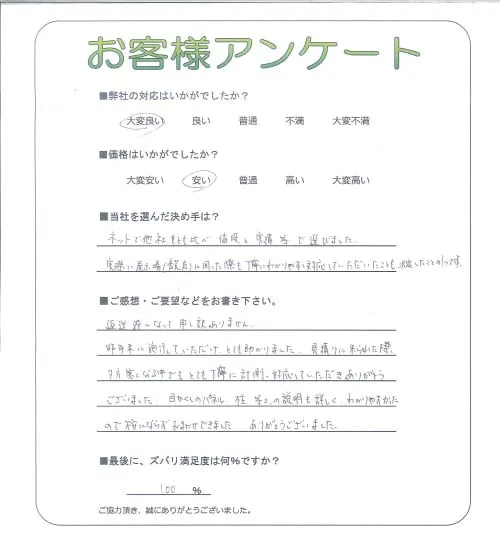 お客様アンケート
■弊社の対応はいかがでしたか？
大変良い 良い 普通 不満 大変不満
■価格はいかがでしたか？
大変安い 安い 普通 高い 大変高い
■当社を選んだ決め手は？
ネットで他社さまとも比べ 値段と実績等で選びました。
実際に展示場に伺った際も丁寧にわかりやすく対応していただいたことも決定したことの1つです。
■ご感想・ご要望などをお書き下さい。
返送遅くなって申し訳ありません。
昨年末に施行していただけ、とても助かりました。見積りに来られた際、
夕方寒くなる中でもとても丁寧に計測、対応していただきありがとう
ございました。目かくしのパネル、柱等の説明も詳しく、わかりやすかった
ので悩むことなくおまかせできました。ありがとうございました。
■最後に、ズバリ満足度は何％ですか？
100 ％
ご協力頂き、誠にありがとうございました。